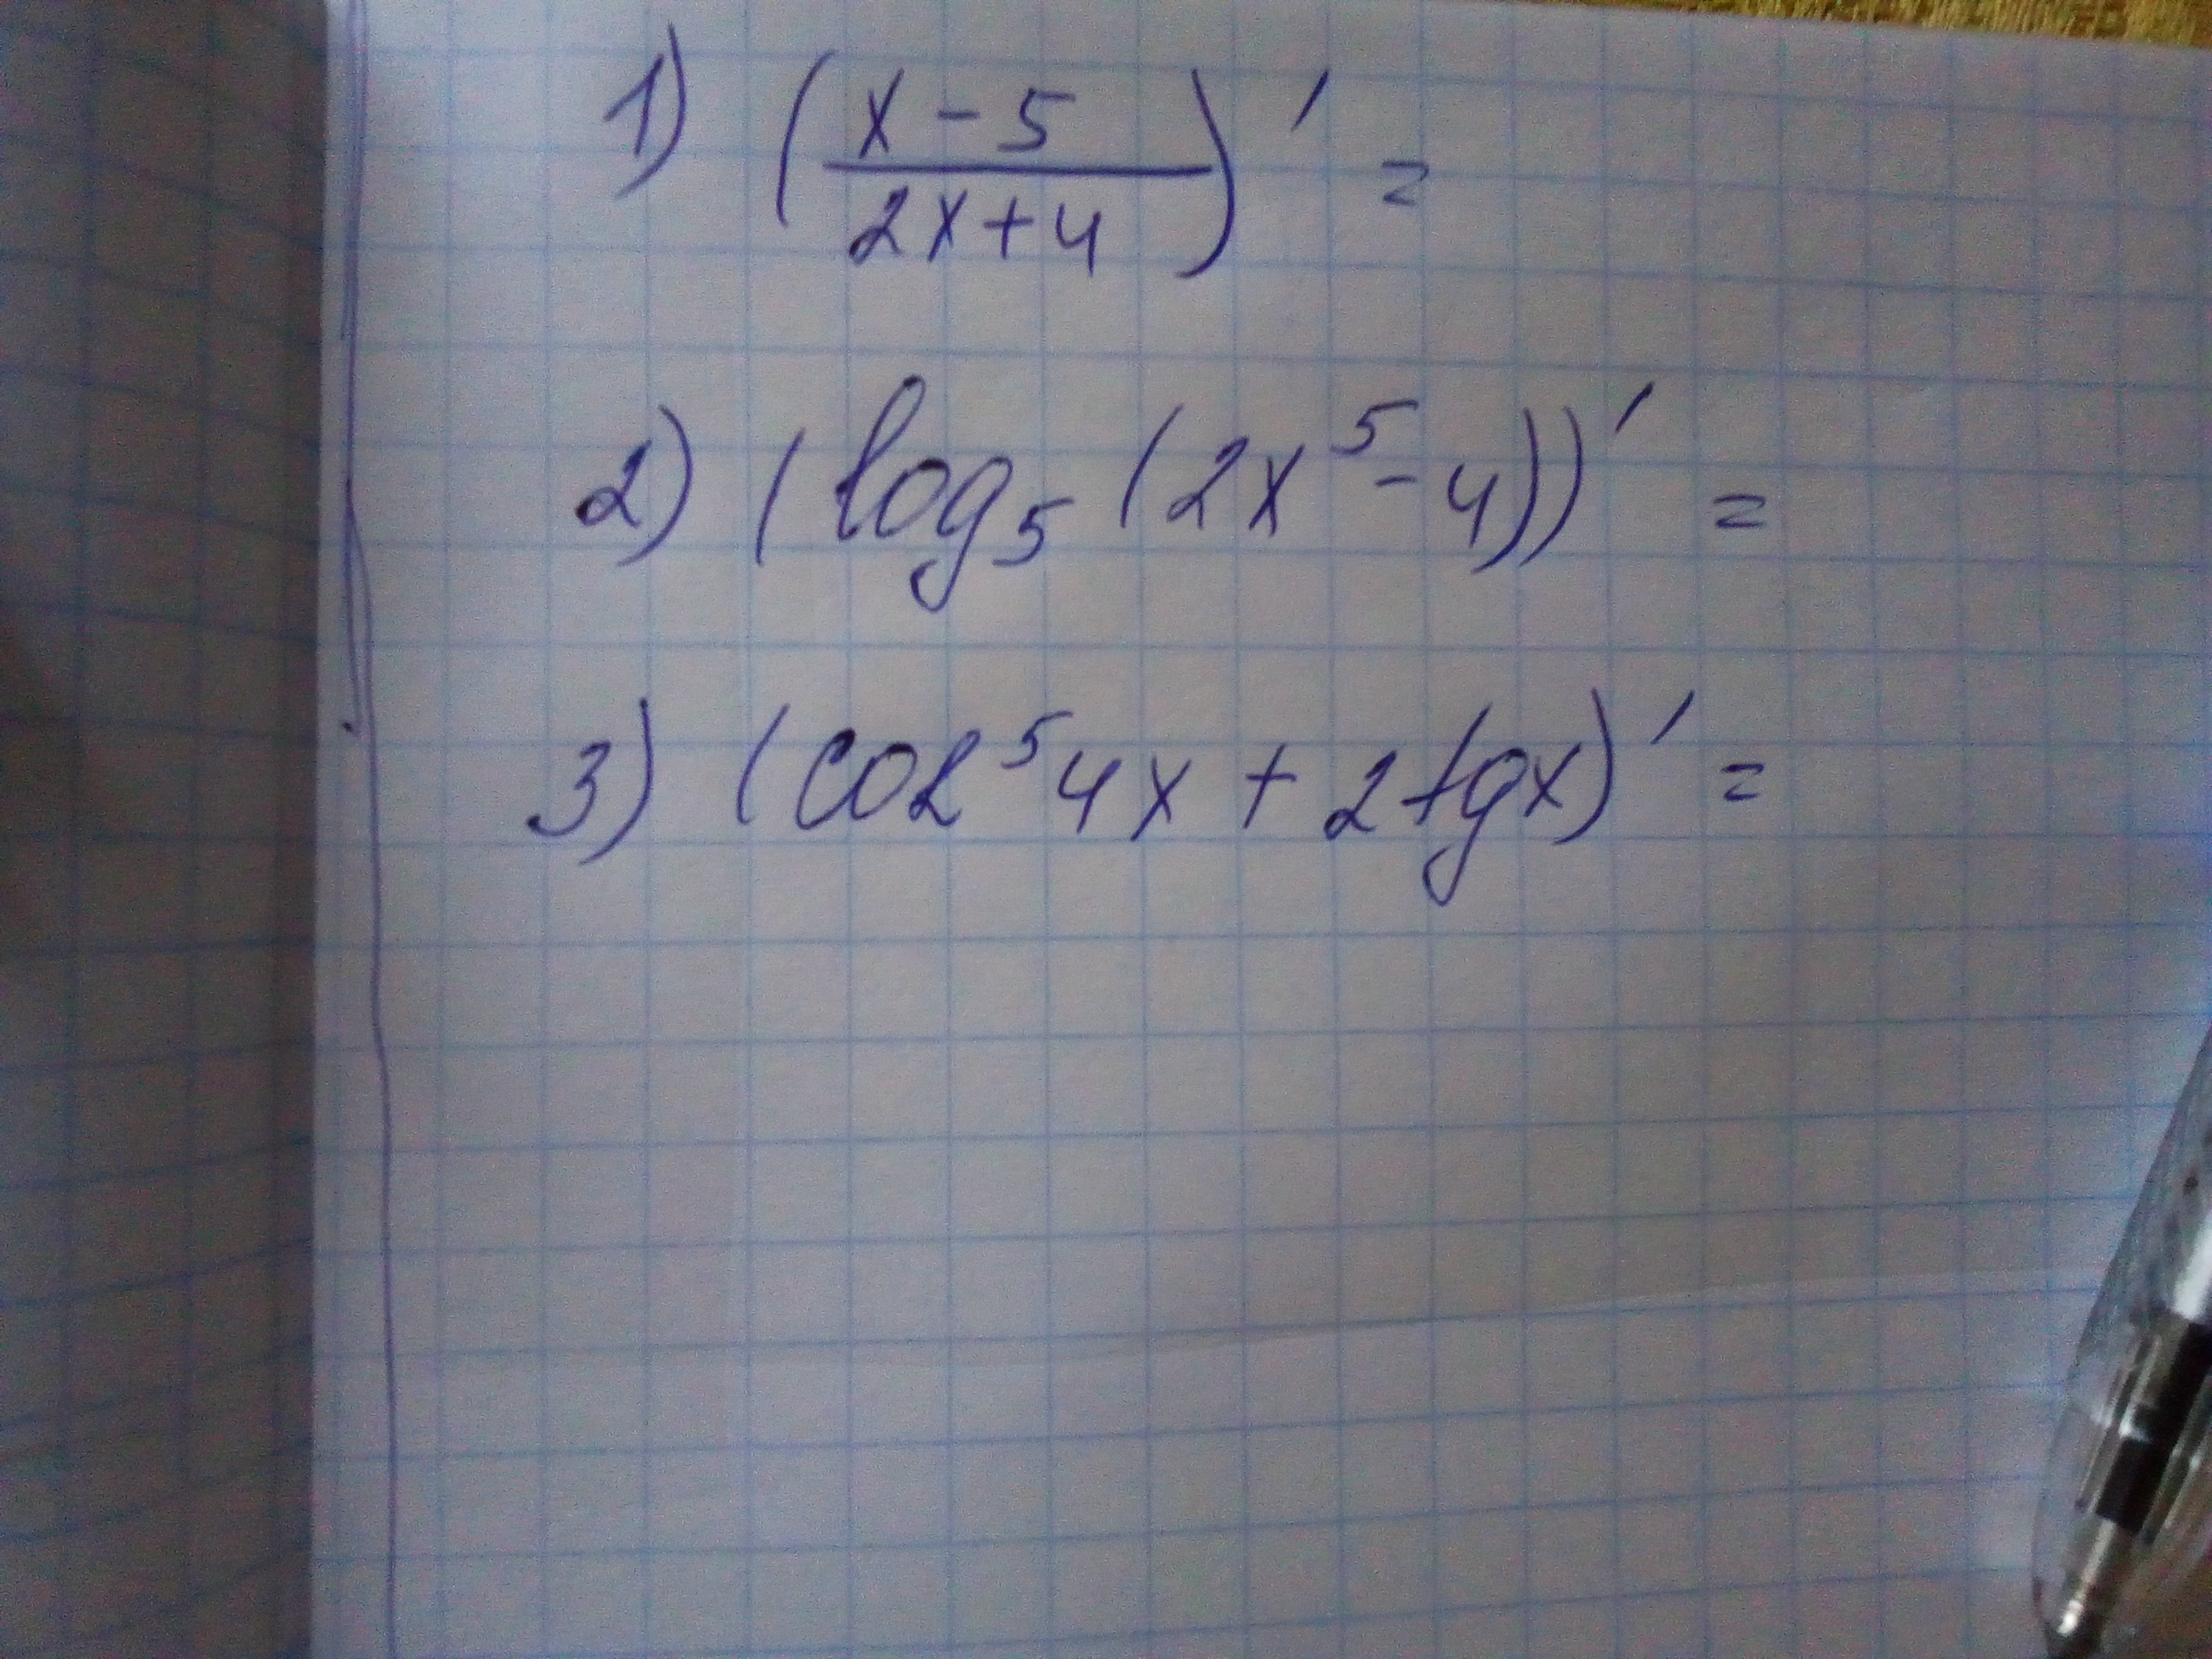 1) ((x-5)/(2x+4))' =
2) (log₅(2x⁵-4))' =
3) (cos⁵4x + 2tgx)' =